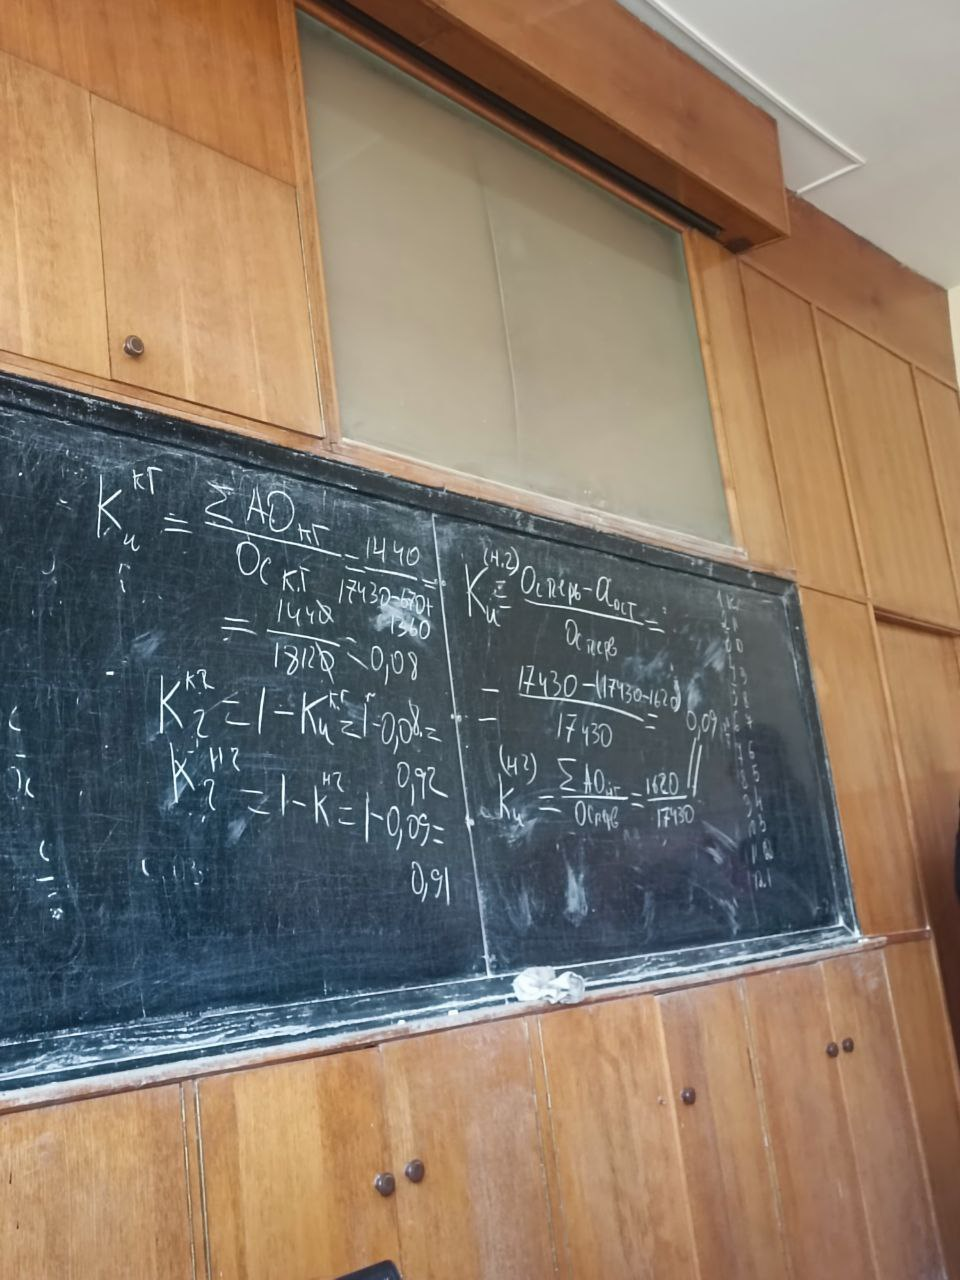 K и кг = ΣАО кг / Ос кг = 1440 / 17430-670+1360 =
= 1440 / 18120 = 0,08
K г кг = 1 - K и кг = 1 - 0,08 =
0,92
K г нг = 1 - K нг = 1 - 0,09 =
0,91
K и (н.г) = Ос перв - Аост / Ос перв =
= 17430 - (17430-1620) / 17430 = 0,09
K и (нг) = ΣАО нг / Ос перв = 1620 / 17430